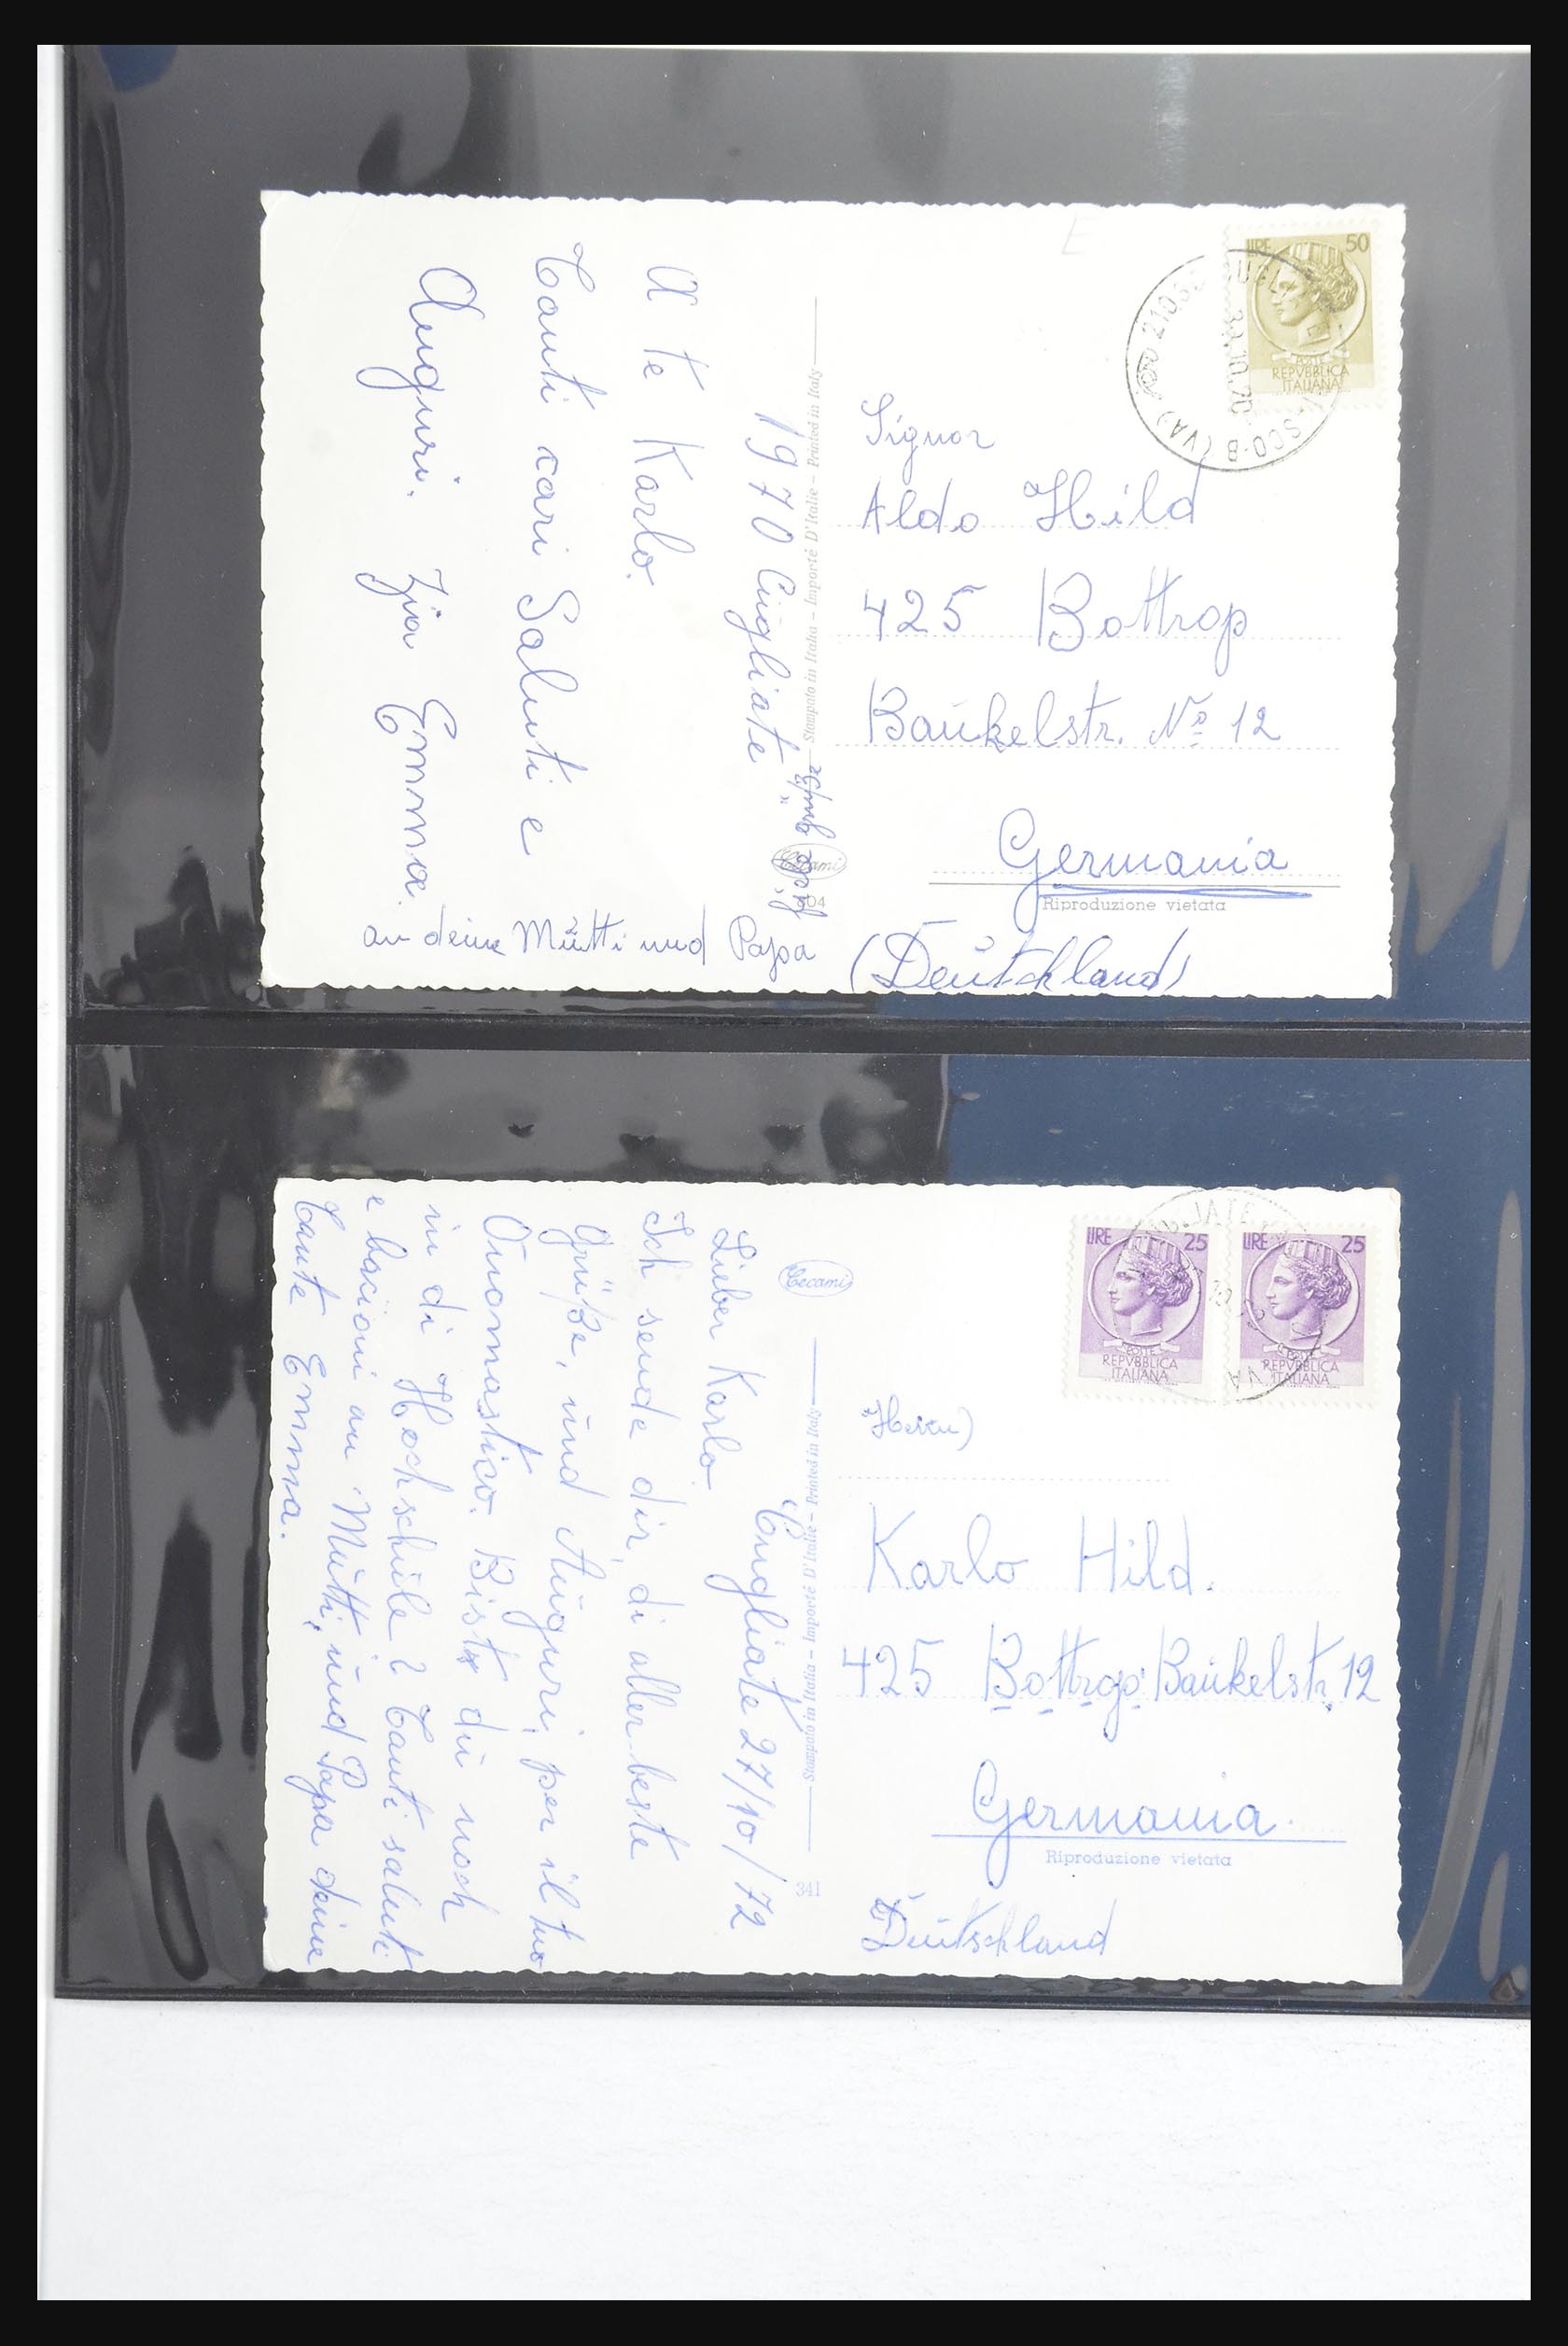 LIRE 50
POSTE
REPVBBLICA
ITALIANA
30.10.70
SCO-B (VA)
Signor
Aldo Hild
425 Bottrop
Baükelstr. No 12
Germania
Riproduzione vietata
(Deütschland)
Stampato in Italia – Importé D'Italie – Printed in Italy
Cecami
1970 Cugliate
A te Karlo.
Tanti cari Saluti e
Auguri. Zia Emma.
an deine Mütti und Papa
LIRE 25
POSTE
REPVBBLICA
ITALIANA
LIRE 25
POSTE
REPVBBLICA
ITALIANA
VA
Karlo Hild.
425 Bottrop Baükelstr. 12
Germania.
Riproduzione vietata
Deütschland
Cecami
Stampato in Italia – Importé D'Italie – Printed in Italy
341
Cugliate 27/10/72
Lieber Karlo.
Ich sende dir, di aller beste
Grüße, ünd Aügüri, per il tuo
Onomastico. Bist dü noch
in di Hochschüle? Tanti saluti
e bacioni an Mütti, ünd Papa deine
Tante Emma.